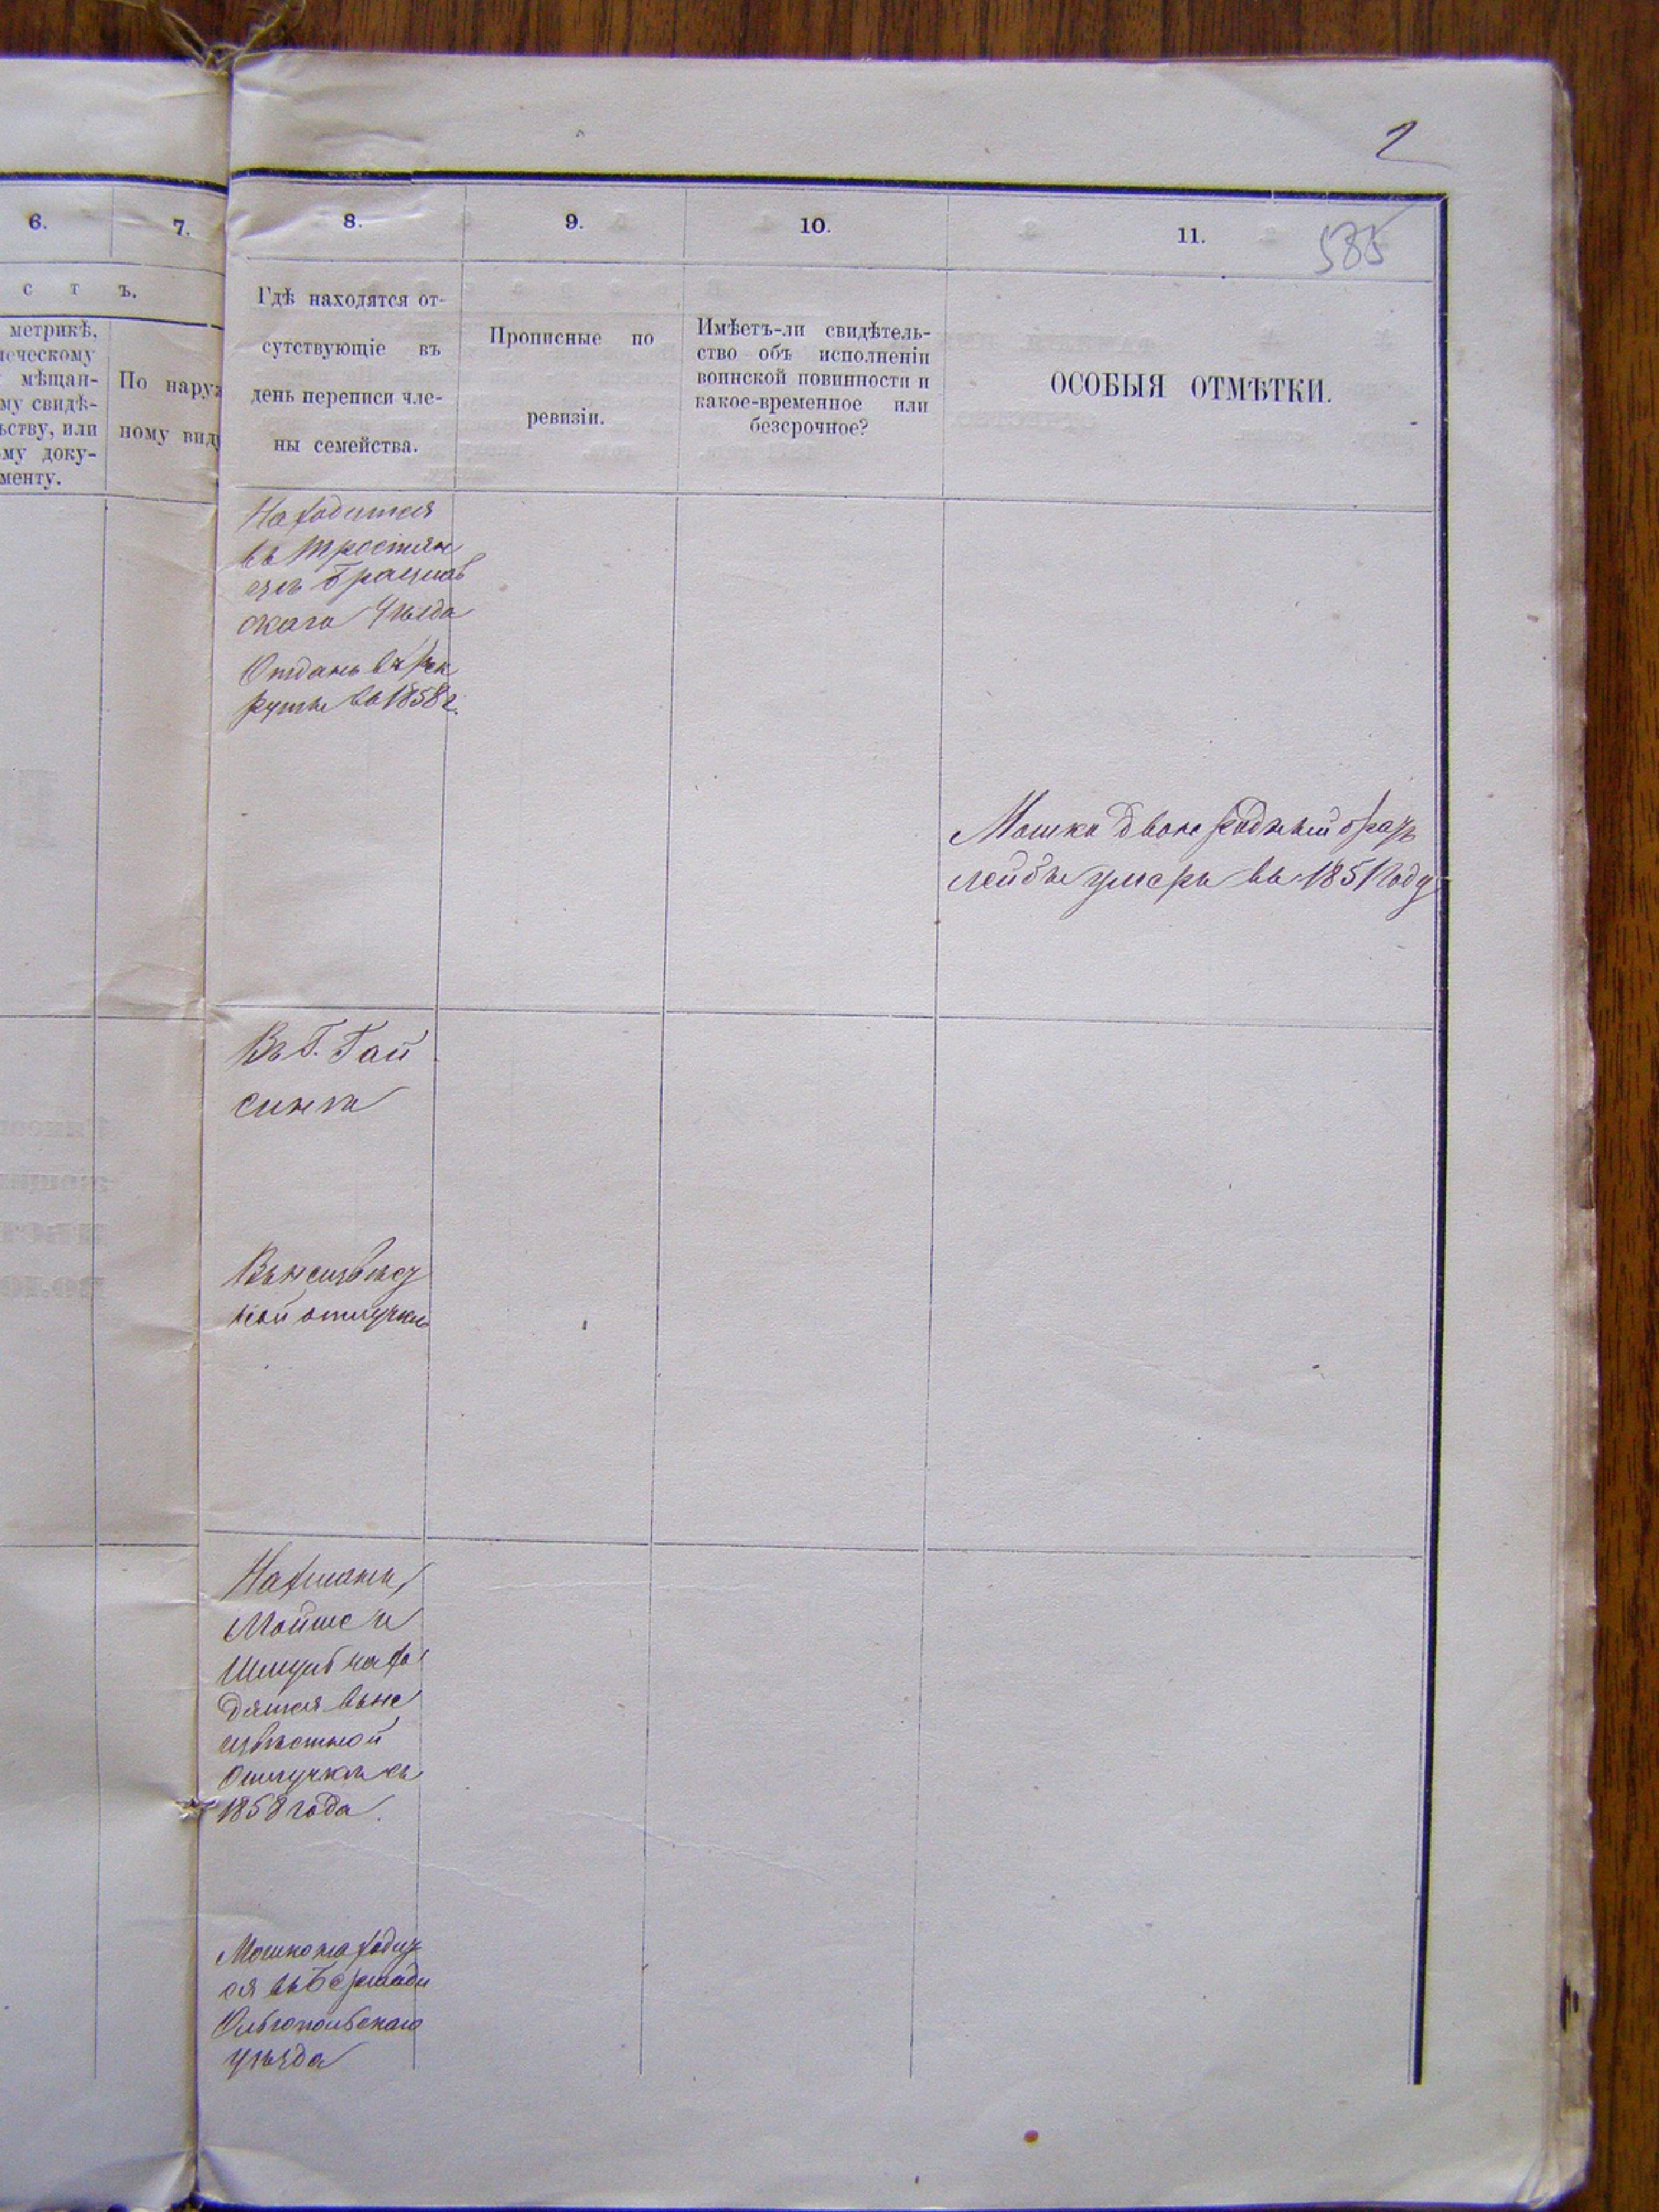 2
6.
7.
8.
9.
10.
11.
585
с т ъ.
метрикѣ,
мѣщан-
му свидѣ-
ьству, или
му доку-
менту.
По наруж
ному виду
Гдѣ находятся от-
сутствующіе въ
день переписи чле-
ны семейства.
Прописные по
ревизіи.
Имѣетъ-ли свидѣтель-
ство объ исполненіи
воинской повинности и
какое-временное или
безсрочное?
ОСОБЫЯ ОТМѢТКИ.
Находится
въ Тростян
цѣ Брацлав
скаго Уѣзда
Отданъ въ рек
руты въ 1858 г.
Мошко двоюродный братъ
Лейбы умеръ въ 1851 году
Въ Г. Гай
синѣ
Въ неизвѣст
ной отлучкѣ
Нахманъ,
Мойше и
Шмуль нахо
дятся въ не
извѣстной
отлучкѣ съ
1858 года.
Мошко находит
ся въ Бершади
Ольгопольскаго
уѣзда